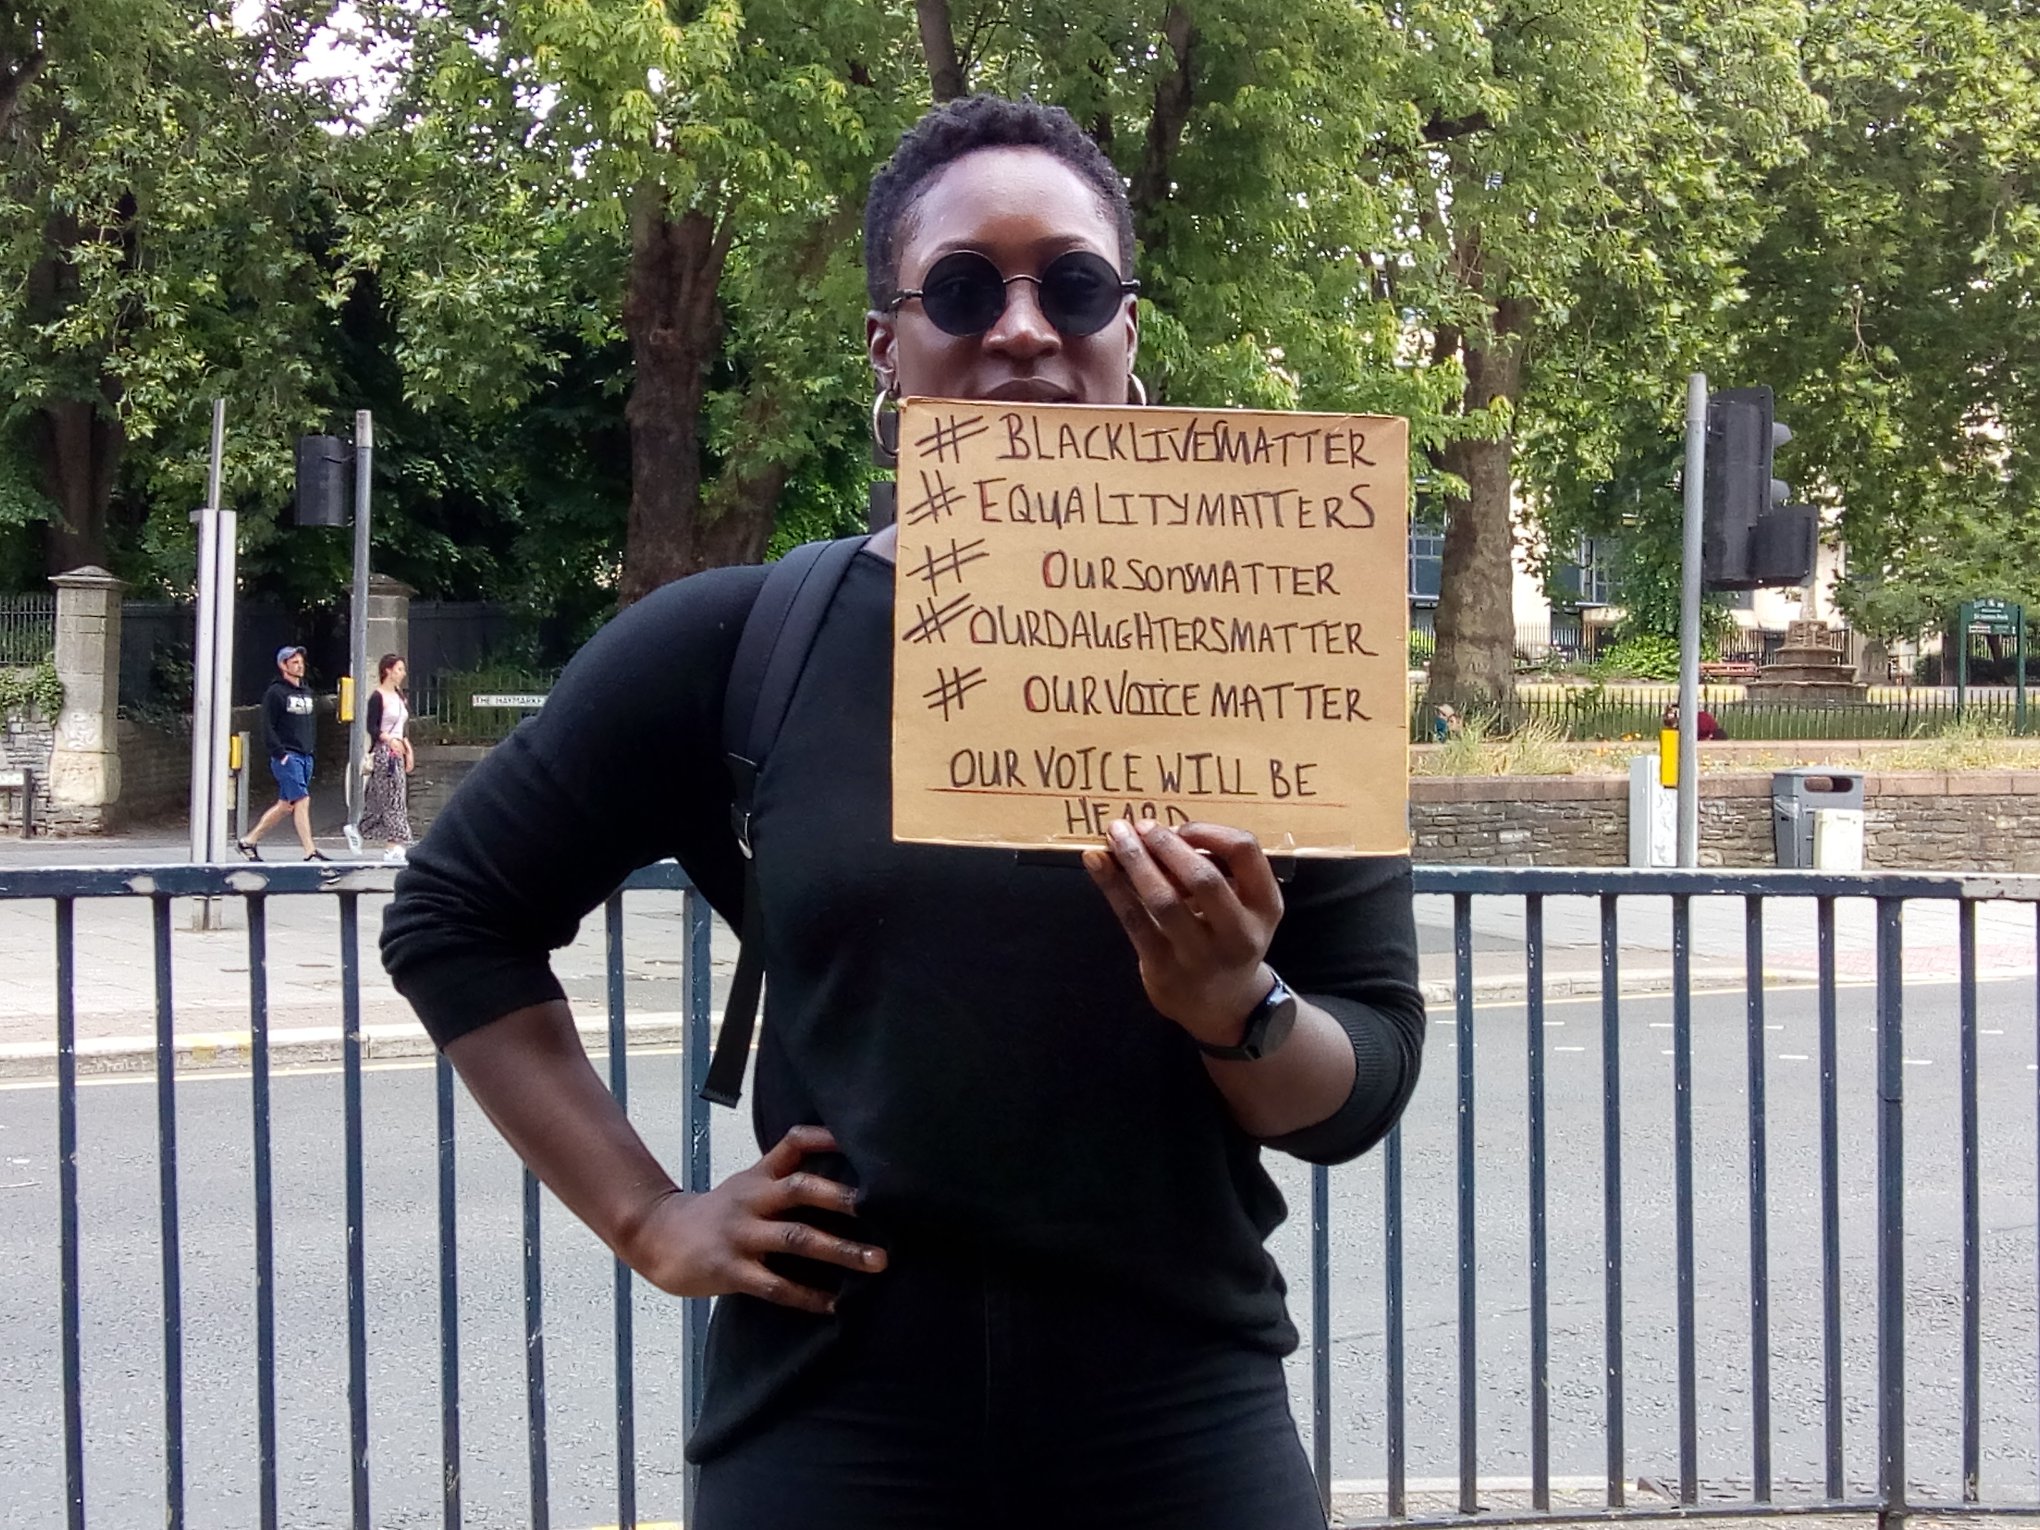 # BLACKLIVESMATTER
# EQUALITYMATTERS
# OURSONSMATTER
# OURDAUGHTERSMATTER
# OURVOICE MATTER
OUR VOICE WILL BE
HEARD
THE HAYMARKET